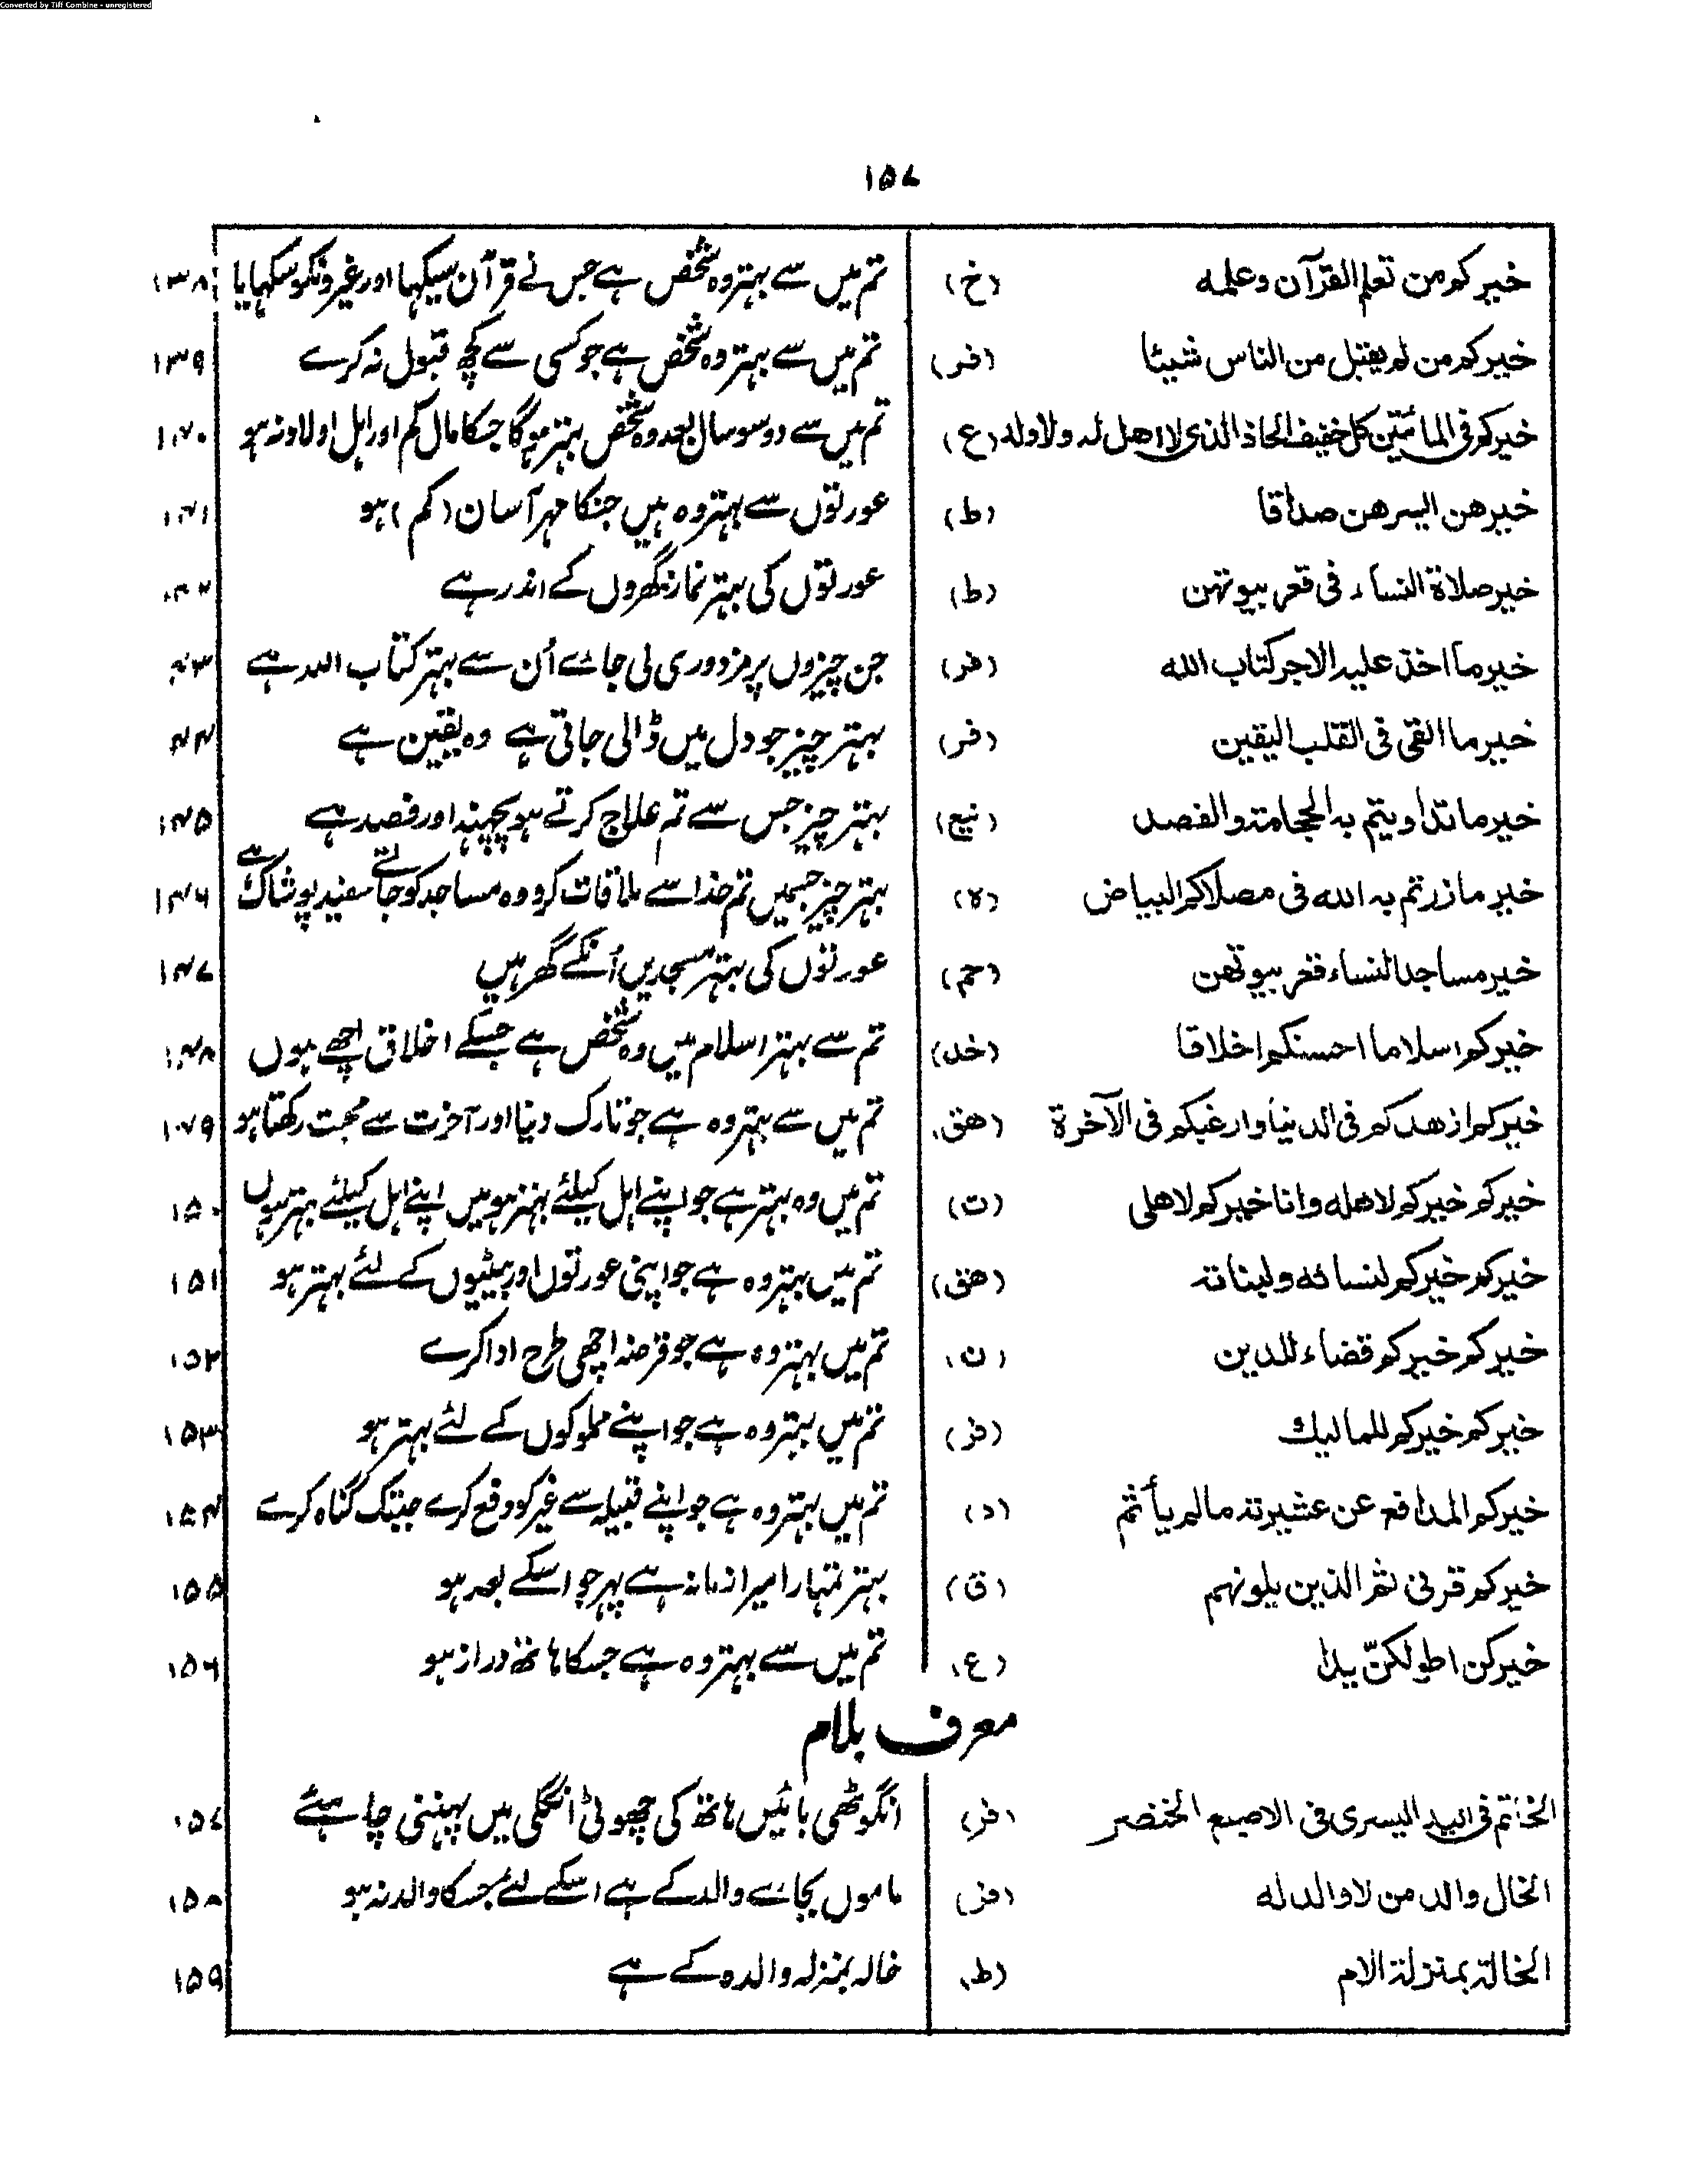 Converted by Tiff Combine - unregistered
۱۵۷
خیرکم من تعلم القرآن وعلمه (خ) تم میں سے بہتر وہ شخص ہے جس نے قرآن سیکہا اور غیرونکو سکہایا ۱۳۸
خیرکم من لم یقبل من الناس شیئا (فر) تم میں سے بہتر وہ شخص ہے جو کسی سے کچھ قبول نہ کرے ۱۳۹
خیرکم فی المائتین کل خفیف الحاذ الذی لا اهل له ولا ولد (ع) تم میں سے دو سو سال بعد وہ شخص بہتر ہوگا جسکا مال کم اور اہل اولاد نہ ہو ۱۴۰
خیرهن ایسرهن صداقا (ط) عورتوں سے بہتر وہ ہیں جنکا مہر آسان (کم) ہو ۱۴۱
خیر صلاة النساء فی قعر بیوتهن (ط) عورتوں کی بہتر نماز گھروں کے اندر ہے ۱۴۲
خیر ما اخذ علیه الاجر کتاب الله (فر) جن چیزوں پر مزدوری لی جاۓ اُن سے بہتر کتاب اللہ ہے ۱۴۳
خیر ما القی فی القلب الیقین (فر) بہتر چیز جو دل میں ڈالی جاتی ہے وہ یقین ہے ۱۴۴
خیر ما تداویتم به الحجامة والفصد (نیع) بہتر چیز جس سے تم علاج کرتے ہو پچہنہ اور فصد ہے ۱۴۵
خیر ما زرتم به الله فی مصلاکم البیاض (ہ) بہتر چیز جسمیں تم خدا سے ملاقات کرو وہ مساجد کو جاتے سفید پوشاک ہے ۱۴۶
خیر مساجد النساء قعر بیوتهن (حم) عورتوں کی بہتر مسجدیں اُنکے گھر ہیں ۱۴۷
خیرکم اسلاما احسنکم اخلاقا (خد) تم سے بہتر اسلام میں وہ شخص ہے جسکے اخلاق اچھے ہوں ۱۴۸
خیرکم ازهدکم فی الدنیا وارغبکم فی الآخرة (هق) تم میں سے بہتر وہ ہے جو تارک دنیا اور آخرت سے محبت رکھتا ہو ۱۴۹
خیرکم خیرکم لاهله وانا خیرکم لاهلی (ت) تم میں وہ بہتر ہے جو اپنے اہل کیلئے بہتر ہو میں اپنے اہل کیلئے بہتر ہوں ۱۵۰
خیرکم خیرکم لنسائه ولبناته (هق) تم میں بہتر وہ ہے جو اپنی عورتوں اور بیٹیوں کے لئے بہتر ہو ۱۵۱
خیرکم خیرکم قضاء للدین (ن) تم میں بہتر وہ ہے جو قرضہ اچھی طرح ادا کرے ۱۵۲
خیرکم خیرکم للمالیك (فر) تم میں بہتر وہ ہے جو اپنے مملوکوں کے لئے بہتر ہو ۱۵۳
خیرکم المدافع عن عشیرته مالم یأثم (د) تم میں بہتر وہ ہے جو اپنے قبیلہ سے غیر کو دفع کرے جبتک گناہ کرے ۱۵۴
خیرکم قرنی ثم الذین یلونهم (ق) بہتر تمہارا میرا زمانہ ہے پہر جو اسکے بعد ہو ۱۵۵
خیرکن اطولکنّ یدا (ع) تم میں سے بہتر وہ ہے جسکا ہاتھ دراز ہو ۱۵۶
معرف بلام
الخاتم فی الید الیسری فی الاصبع الخنصر (فر) انگوٹھی بائیں ہاتھ کی چھوٹی انگلی میں پہننی چاہئے ۱۵۷
الخال والد من لا والد له (فر) ماموں بجاۓ والد کے ہے اسکے لئے جسکا والد نہ ہو ۱۵۸
الخالة بمنزلة الام (ط) خالہ بمنزلہ والدہ کے ہے ۱۵۹